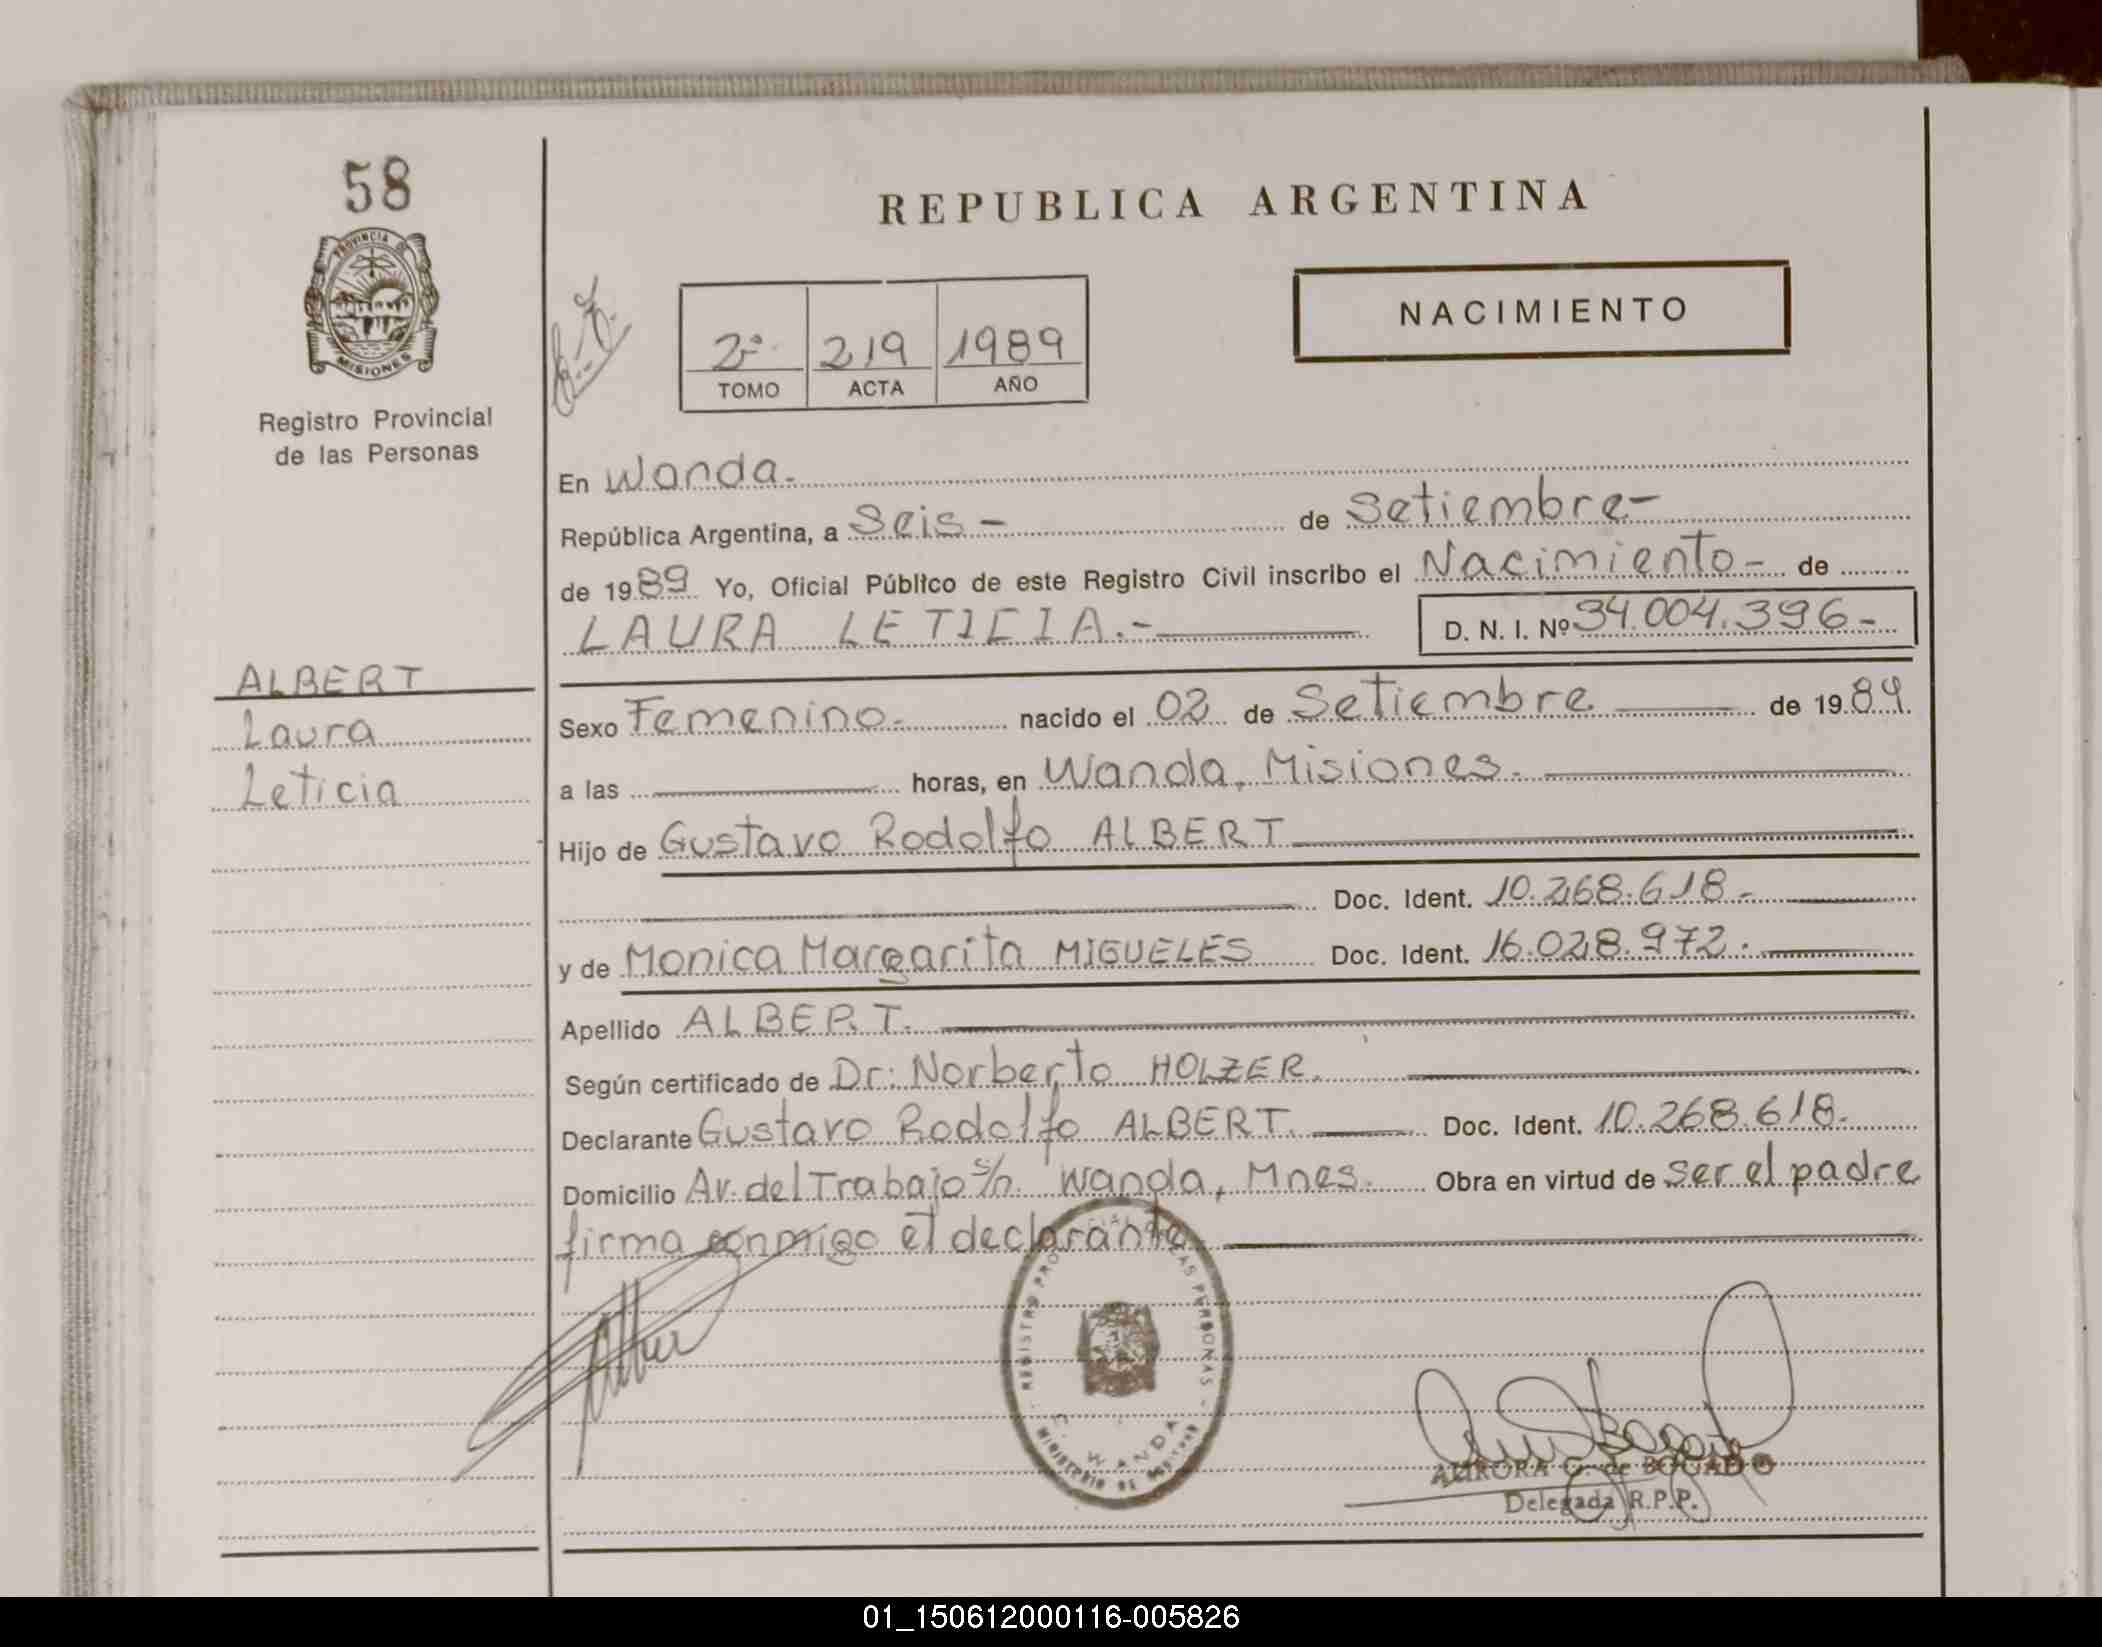 58
PROVINCIA DE
MISIONES
Registro Provincial
de las Personas
ALBERT
Laura
Leticia
REPUBLICA ARGENTINA
NACIMIENTO
2º 219 1989
TOMO ACTA AÑO
En Wanda.
República Argentina, a Seis - de Setiembre-
de 1989 Yo, Oficial Público de este Registro Civil inscribo el Nacimiento- de
LAURA LETICIA.- D. N. I. Nº 34.004.396-
Sexo Femenino. nacido el 02 de Setiembre de 1989.
a las horas, en Wanda, Misiones.
Hijo de Gustavo Rodolfo ALBERT
Doc. Ident. 10.268.618.-
y de Monica Margarita MIGUELES Doc. Ident. 16.028.972.
Apellido ALBERT.
Según certificado de Dr: Norberto HOLZER.
Declarante Gustavo Rodolfo ALBERT. Doc. Ident. 10.268.618.
Domicilio Av. del Trabajo s/n. Wanda, Mnes. Obra en virtud de ser el padre
firma conmigo el declarante
REGISTRO LAS PERSONAS
WANDA
MINISTERIO DE
AURORA G. de BOGADO
Delegada R.P.P.
01_150612000116-005826